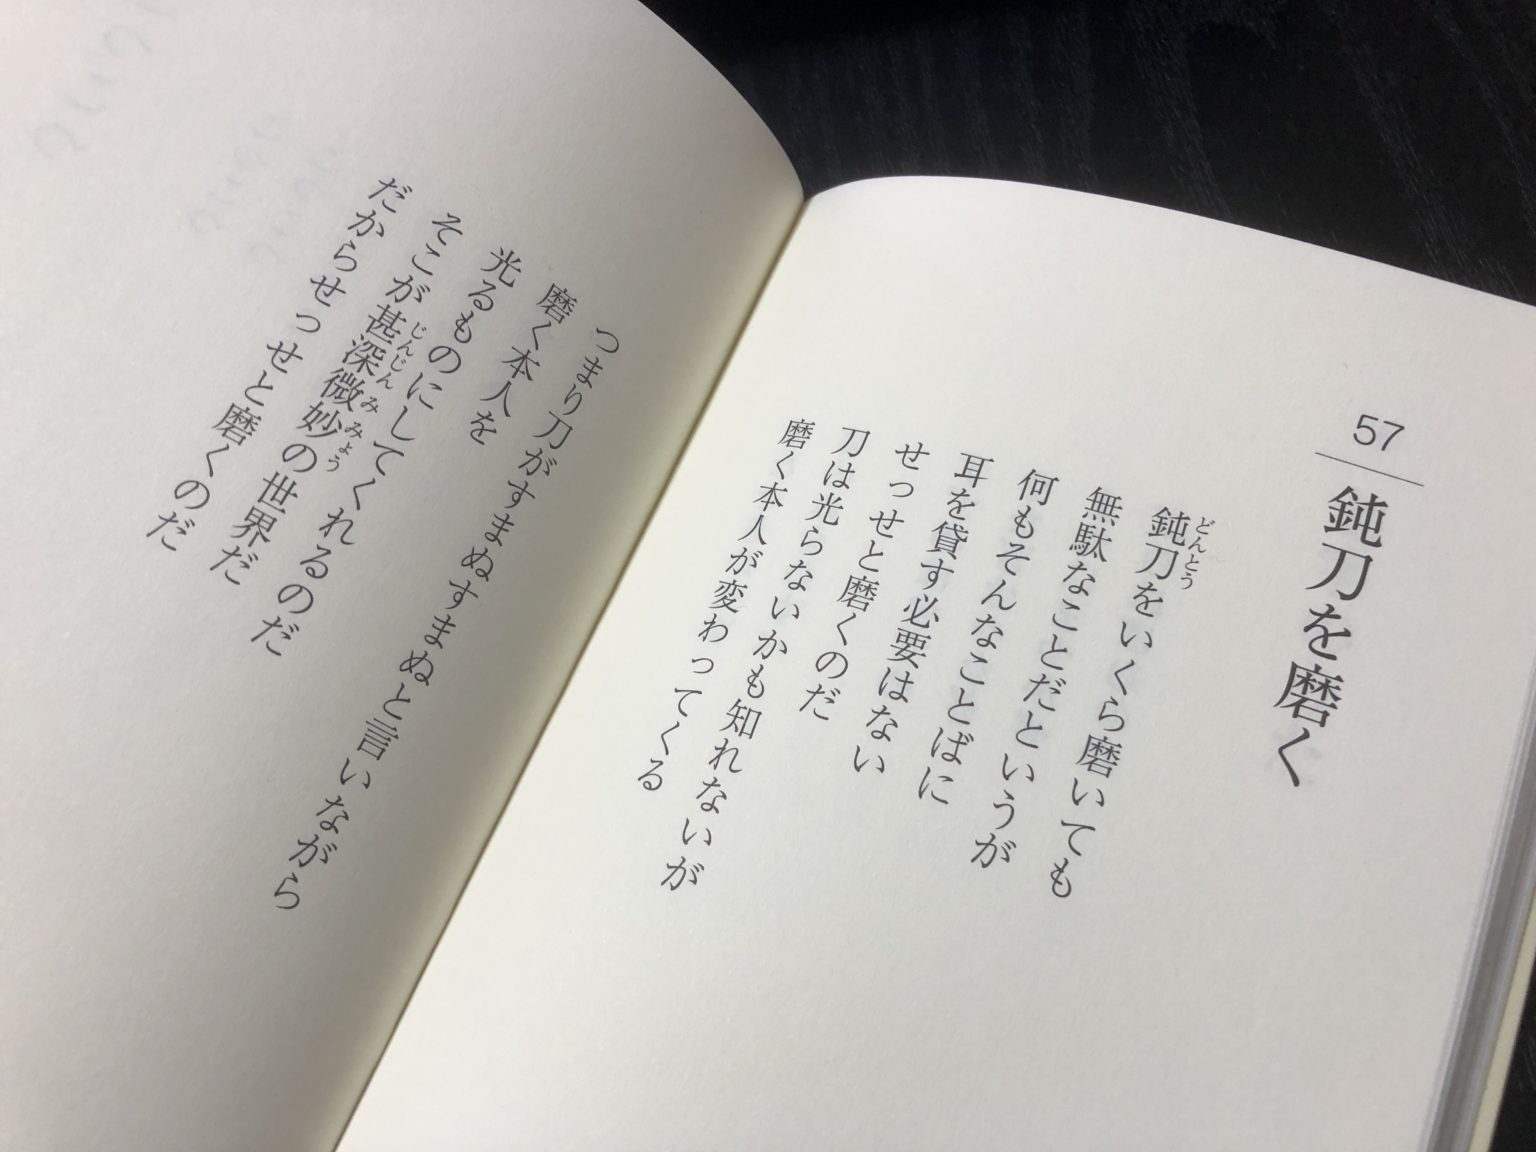 57
鈍刀を磨く
鈍刀をいくら磨いても
どんとう
無駄なことだというが
何もそんなことばに
耳を貸す必要はない
せっせと磨くのだ
刀は光らないかも知れないが
磨く本人が変わってくる
つまり刀がすまぬすまぬと言いながら
磨く本人を
光るものにしてくれるのだ
そこが甚深微妙の世界だ
じんじんみみょう
だからせっせと磨くのだ